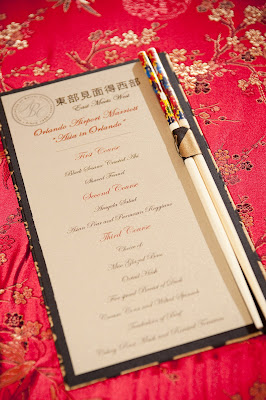 東部見面得西部
East Meets West
Orlando Airport Marriott
"Asia in Orlando"
First Course
Black Sesame Crusted Ahi
Seared
Second Course
Arugula Salad
Asian Pear and Parmesan Reggiano
Third Course
Choice of:
Miso Glazed Bass
Breast of Duck
Creamer Corn and Wilted Spinach
Tenderloin of Beef
Celery Root Mash and Roasted Tomatoes